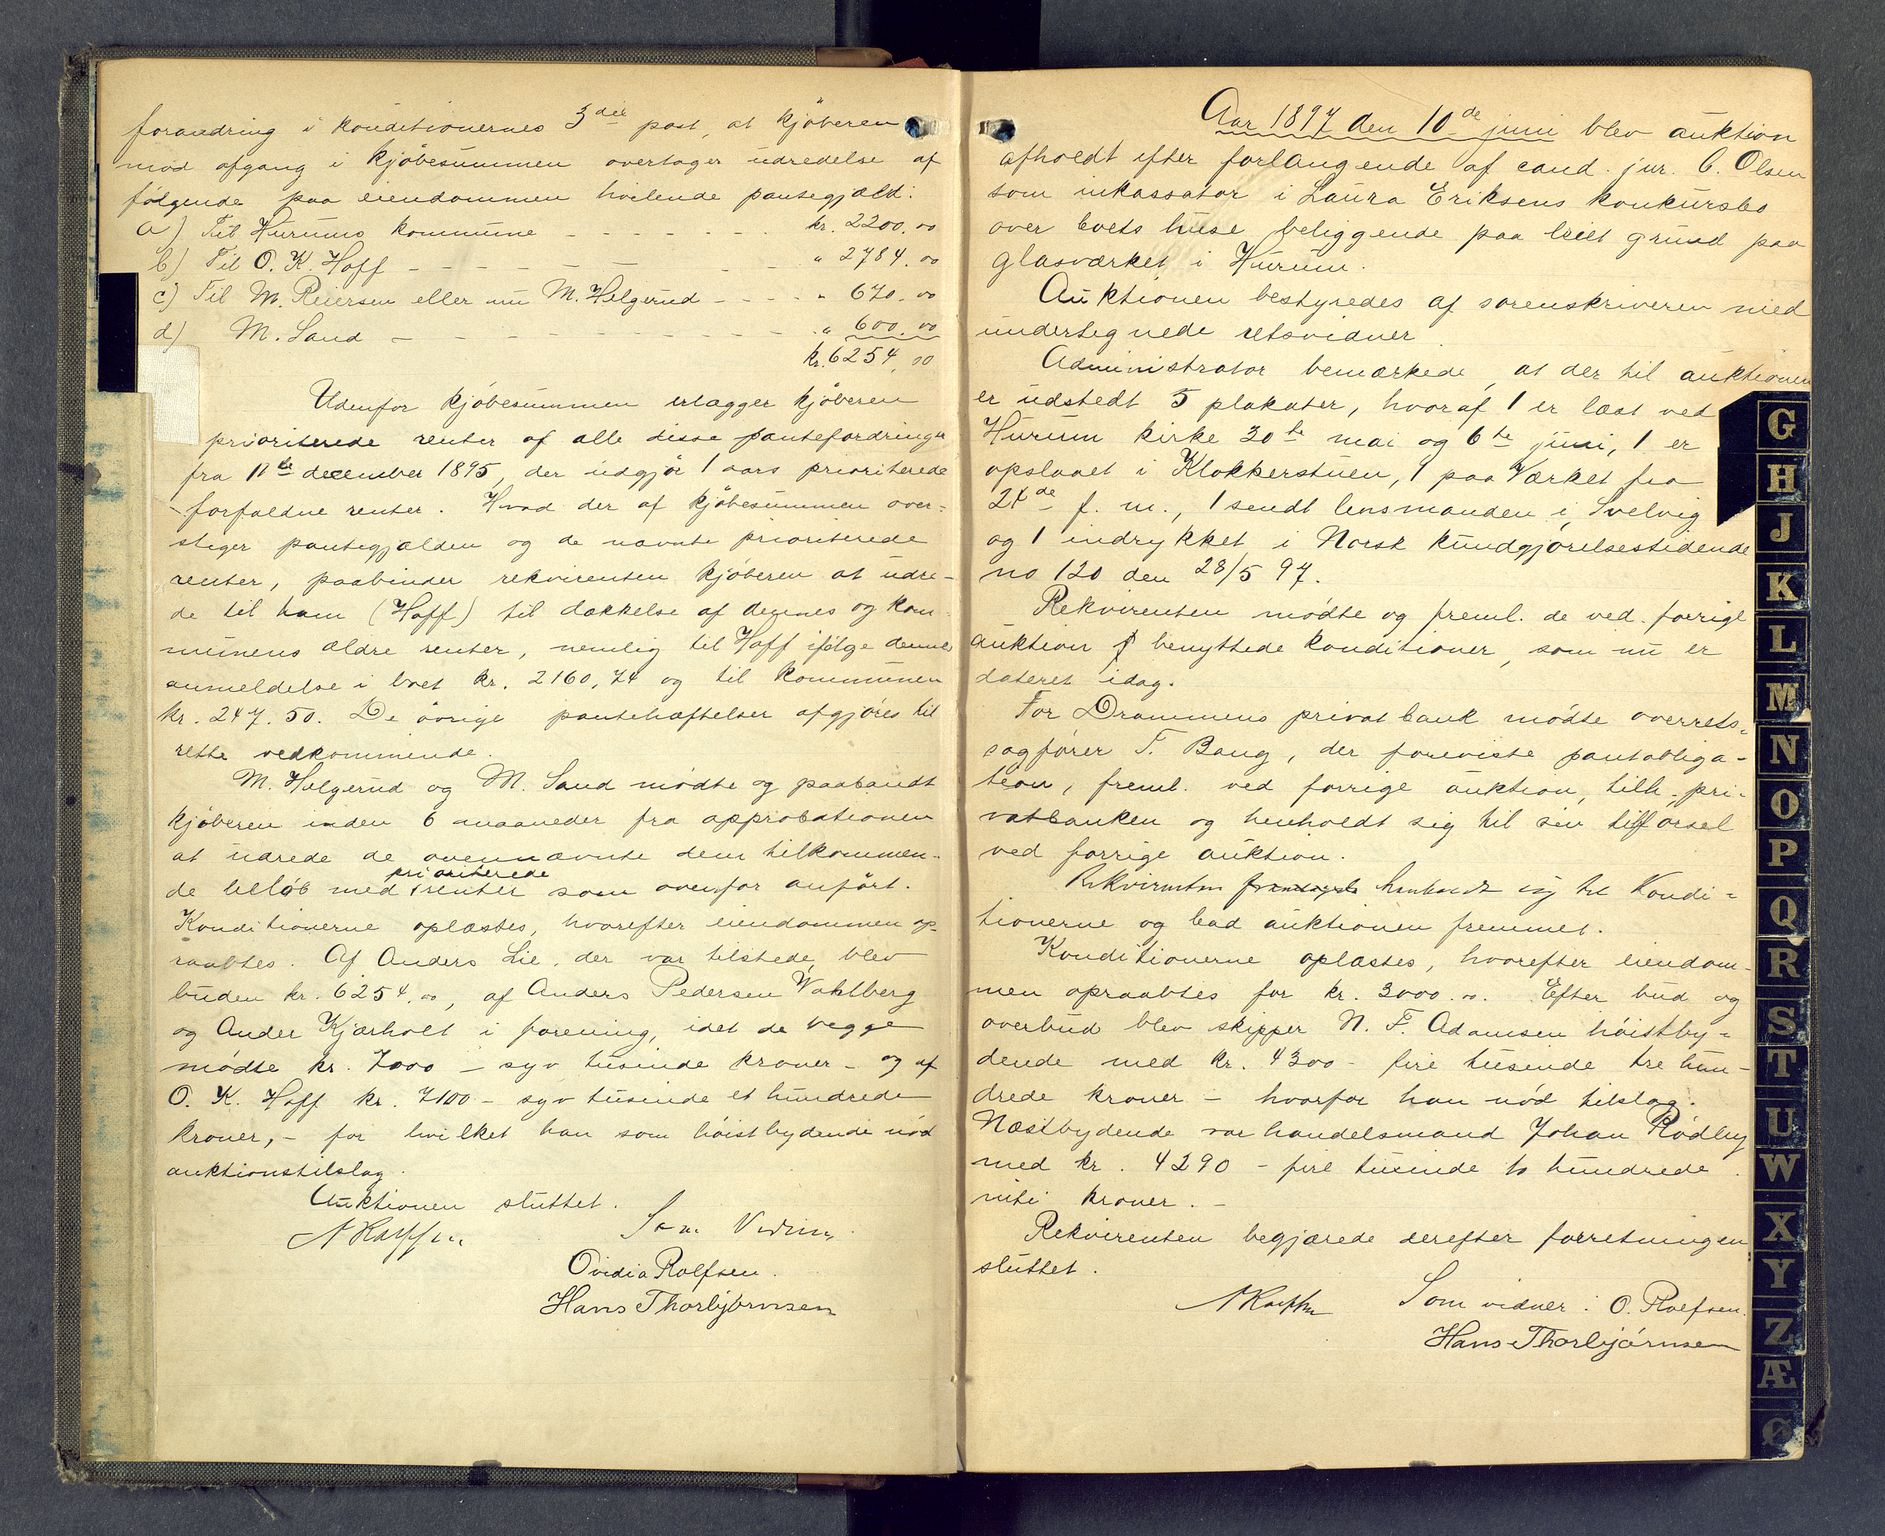 forandring i konditionernes 3die post, at kjöberen
mod afgang i kjöbesummen overtager udredelse af
følgende paa eiendommen hvilende pantegjæld:
a) Til Hurums kommune - - - - - - - kr. 2200.00
b) Til O. K. Hoff - - - - - - - - - " 2784.00
c) Til M. Reiersen eller nu M. Helgerud - - - - " 670.00
d) M. Sand - - - - - - - - - " 600.00
kr. 6254,00
Udenfor kjöbesummen erlægger kjöberen
prioriterede renter af alle disse pantefordringer
fra 11te december 1895, der udgjör 1 aars prioriterede
forfaldne renter. Hvad der af kjöbesummen over-
stiger pantegjælden og de nævnte prioriterede
renter, paabinder rekvirenten kjöberen at udre-
de til ham (Hoff) til dækkelse af dennes og kom-
munens ældre renter, nemlig til Hoff ifölge dennes
anmeldelse i boet kr. 2160,74 og til kommunen
kr. 247.50. De övrige pantehæftelser afgjöres til
rette vedkommende.
M. Helgerud og M. Sand mødte og paabandt
kjöberen inden 6 maaneder fra approbationen
at udrede de ovennævnte dem tilkommen-
prioriterede
de belöb med renter som ovenfor anfört.
Konditionerne oplæstes, hvorefter eiendommen op-
raabtes. Af Anders Lie, der var tilstede, blev
buden kr. 6254.00, af Anders Pedersen Wahlberg
og Ander Kjærholt i forening, idet de begge
mödte kr. 7000 - syv tusinde kroner - og af
O. K. Hoff kr. 7100 - syv tusinde et hundrede
kroner, - for hvilket han som höistbydende nöd
auktionstilslag.
Auktionen sluttet.
Som Vidner
Ovidia Rolfsen.
Hans Thorbjörnsen
Aar 1897 den 10de juni blev auktion
afholdt efter forlangende af cand. jur. C. Olsen
som inkassator i Laura Eriksens konkursbo
over boets huse beliggende paa leiet grund paa
glasværket i Hurum.
Auktionen bestyredes af sorenskriveren med
undertegnede retsvidner.
Administrator bemærkede, at der til auktionen
er udstedt 5 plakater, hvoraf 1 er læst ved
Hurum kirke 30te mai og 6te juni, 1 er
opslaaet i Klokkerstuen, 1 paa Værket fra
f. m., 1 sendt lensmanden i Svelvig
og 1 indrykket i Norsk kundgjörelsestidende
no 120 den 28/5 97.
Rekvirenten mödte og freml. de ved forrige
auktion benyttede konditioner, som nu er
dateret idag.
For Drammens privatbank mödte overrets-
sagförer F. Bang, der foreviste pantobliga-
tion, freml. ved forrige auktion, tilh. pri-
vatbanken og henholdt sig til sin tilförsel
ved forrige auktion.
Rekvirenten henholdt sig til Kondi-
tionerne og bad auktionen fremmet.
Konditionerne oplæstes, hvorefter eiendom-
men opraabtes for kr. 3000.00. Efter bud og
overbud blev skipper N. F. Adamsen höistby-
dende med kr. 4300 - fire tusinde tre hun-
drede kroner - hvorfor han nöd tilslag.
Næstbydende var handelsmand Johan Rödby
med kr. 4290 - fire tusinde to hundrede
niti kroner. -
Rekvirenten begjærede derefter forretningen
sluttet.
Som vidner: O. Rolfsen.
Hans Thorbjörnsen
G
H
J
K
L
M
N
O
P
Q
R
S
T
U
W
X
Y
Z
Æ
Ø